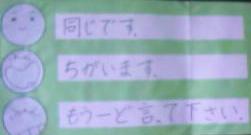 同じです。
ちがいます。
もう一ど言って下さい。